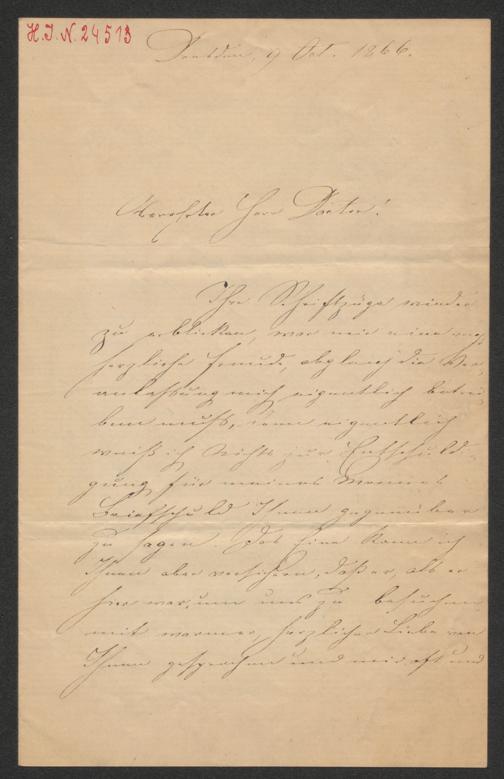 H.I.N. 24513
Dresden, 9 Oct. 1866.
Verehrter Herr Doctor!
Ihre Schriftzüge wieder
zu erblicken, war mir eine
herzliche Freude, obgleich die Ver-
anlassung mich eigentlich betrü-
ben muß, denn eigentlich
weiß ich Nichts zur Entschuldi-
gung für meines Mannes
Briefschuld Ihnen gegenüber
zu sagen. Das Eine kann ich
Ihnen aber versichern, daß er, als er
hier war, um uns zu besuchen
mit warmer, herzlicher Liebe von
Ihnen gesprochen und mir oft und